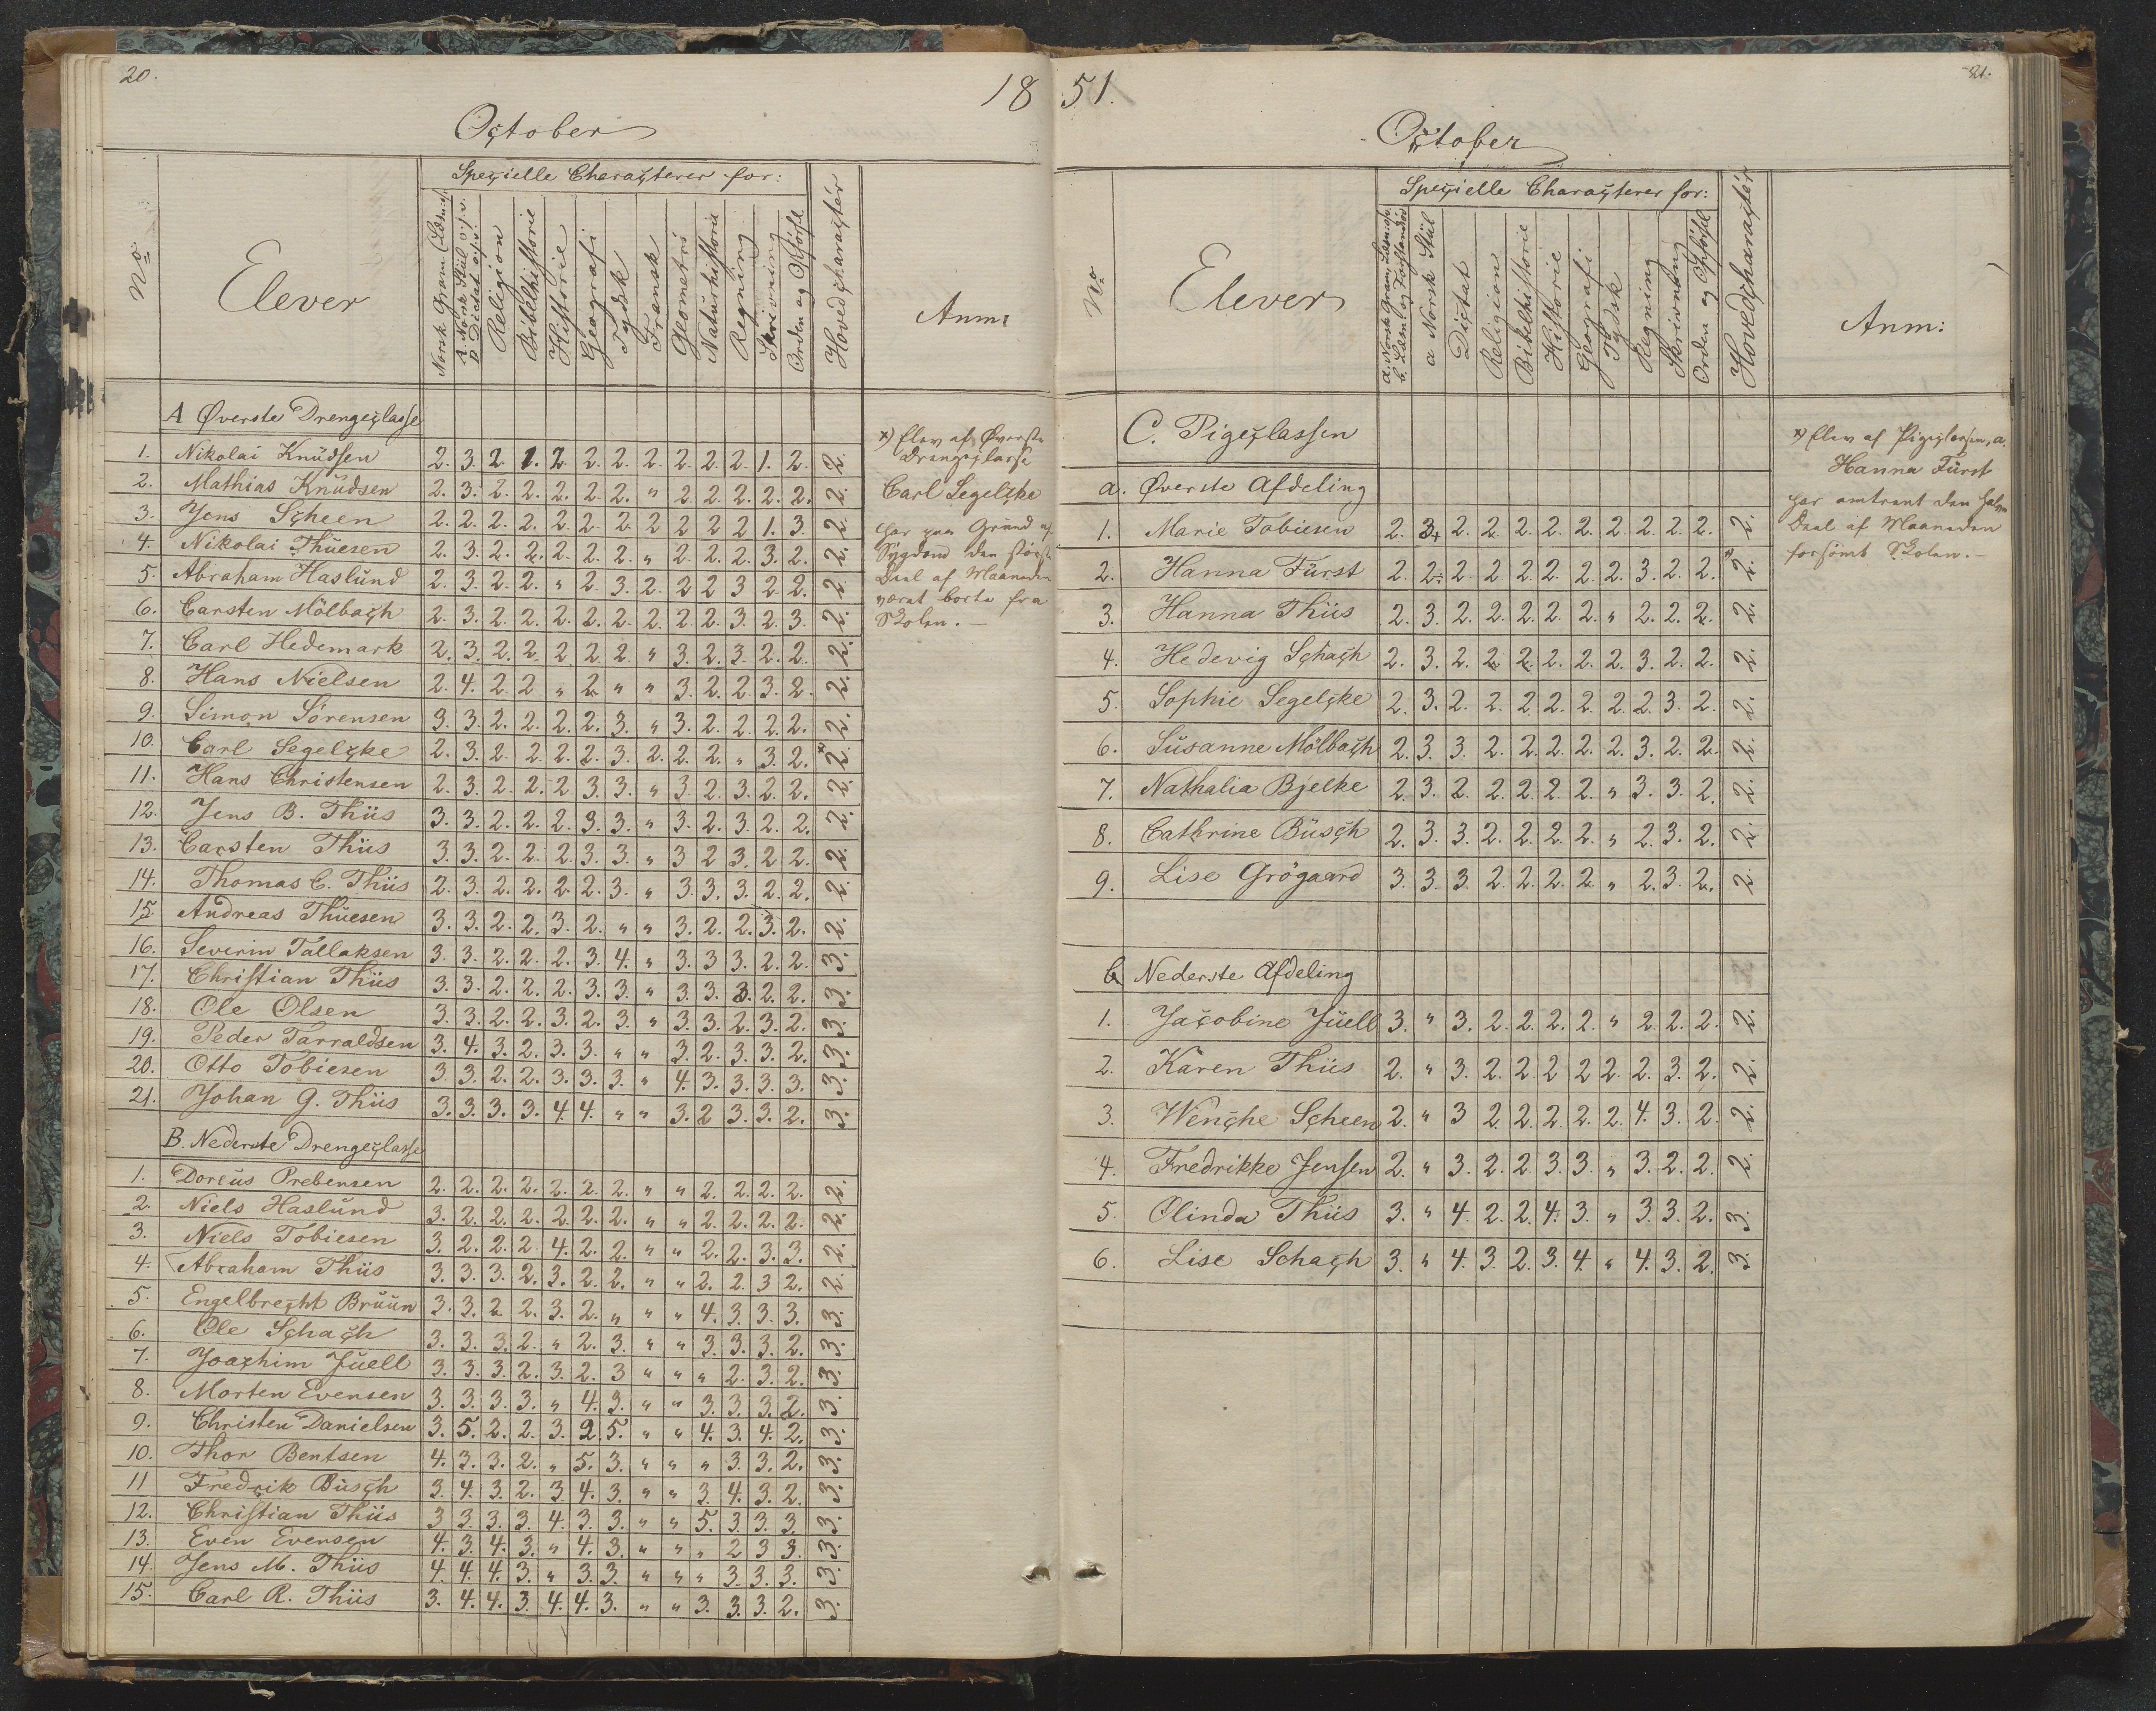 20.
18
October
No
Elever
Specielle Characterer for:
Norsk Gram (Læsn: of.
A. Norsk Stül o.s.v.
B Dictat o.s.v.
Religion
Bibelhistorie
Historie
Geografi
Tydsk
Fransk
Geometri
Naturhistorie
Regning
Skrivning
Orden og Opförsel
Hovedcharactér
Anm:
A Øverste Drengeclasse
1. Nikolai Knüdsen 2. 3. 2. 1. 2. 2. 2. 2. 2. 2. 2. 1. 2. 2.
2. Mathias Knüdsen 2. 3. 2. 2. 2. 2. 2. " 2. 2. 2. 2. 2. 2.
3. Jens Scheen 2. 2. 2. 2. 2. 2. 2. 2 2 2 2 1. 3. 2.
4. Nikolai Thüesen 2. 3. 2. 2. 2. 2. 2. " 2. 2. 2. 3 2. 2.
5. Abraham Haslünd 2. 3. 2. 2. " 2. 3. 2. 2 2 3 2 2. 2.
6. Carsten Mölbach 2. 3. 2. 2. 2. 2. 2. 2. 2. 2. 3. 2. 3. 2.
7. Carl Hedemark 2. 3. 2. 2. 2 2. 2. " 3. 2. 3. 2. 2. 2.
8. Hans Nielsen 2. 4. 2. 2 " 2. " " 3. 2. 2. 3. 2. 2.
9. Simon Sörensen 3. 3. 2. 2. 2. 2. 3. " 3. 2. 2. 2. 2. 2.
10. Carl Segelcke 2. 3. 2. 2. 2. 2. 3. 2. 2. 2. " 3. 2. *2.
11. Hans Christensen 2. 3. 2. 2. 2 3 3. " 3. 2. 3. 2. 2. 2.
12. Jens B. Thiis 3. 3. 2. 2. 2. 3. 3. " 3. 2. 3. 2. 2. 2.
13. Carsten Thiis 3. 3. 2. 2. 2. 3. 3. " 3 2 3. 2 2. 2.
14. Thomas C. Thiis 2. 3. 2. 2. 2. 2. 3. " 3. 3. 3. 2. 2. 2.
15. Andreas Thüesen 3. 3. 2. 2. 3. 2. " " 3. 2. 2. 3. 2. 2.
16. Severin Tallaksen 3. 3. 2. 2. 2. 3. 4. " 3. 3 3. 2. 2. 3.
17. Christian Thiis 3. 3. 2. 2. 2. 3. 3. " 3. 3. 3. 2. 2. 3.
18. Ole Olsen 3. 3. 2. 2. 3. 2. 3. " 3. 3. 2. 3. 2. 3.
19. Peder Tarraldsen 3. 4. 3. 2. 3. 3. " " 3. 2. 3. 3. 2. 3.
20. Otto Tobiesen 3. 3. 2. 2. 3. 3. 3. " 4. 3. 3. 3. 3. 3.
21. Johan G. Thiis 3. 3. 3. 3. 4. 4. " " 3. 2 3. 3. 2. 3.
B. Nederste Drengeclasse
1. Doreüs Prebensen 2. 2. 2. 2. 2. 2. 2. " " 2. 2. 2. 2. 2.
2. Niels Haslünd 3. 2. 2. 2. 2. 2. 2. " " 2. 2. 2. 2. 2.
3. Niels Tobiesen 3. 2. 2. 2 4. 2. 2. " " 2. 2. 3. 3. 2.
4. Abraham Thiis 3. 3. 3. 2. 3. 2. 2. " " 2. 2. 3 2. 2.
5. Engelbrecht Brüün 3. 3. 2. 2. 3. 2. " " " 4. 3. 3. 3. 3.
6. Ole Schach 3. 3. 3. 2. " 2. 3. " " 3. 3. 3. 2. 3.
7. Joachim Jüell 3. 3. 3. 2. 3. 2. 3 " " " 2. 3. 2. 3.
8. Morten Evensen 3. 3. 3. 3. " 4. 3. " " 3. 3. 3. 2. 3.
9. Christen Danielsen 3. 5. 2. 2. 3. 2. 5. " " 4. 3. 4. 2. 3.
10. Thor Bentsen 4. 3. 3. 2. " 5. 3. " " " 3. 3. 2. 3.
11 Fredrik Büsch 3. 4. 3. 2. 3 4. 3. " " 3. 4. 3. 2. 3.
12. Christian Thiis 3 3. 3. 3. 4. 3. 3. " " 5. 3. 3. 3. 3.
13. Even Evensen 4. 3. 4. 3. " 4. 3. " " " 2 3 3. 3.
14. Jens M. Thiis 4. 4. 4. 3. " 3. 3. " " " 3. 3. 3. 3.
15. Carl R. Thiis 3. 4. 4. 3. 4. 4. 3. " " 3. 3. 3. 2. 3.
*) Elev af Øverste
Drengeclasse
Carl Segelcke
har paa Grund af
Sygdom den störste
Deel af Maaneden
været borte fra
Skolen. –
51.
21.
October
No
Elever
Specielle Characterer for:
a. Norsk Gram, Læsn: o.s.v.
b. Læsn(og Forstandsöv
a Norsk Stül
Dictat
Religion
Bibelhistorie
Historie
Geografi
Tydsk
Regning
Skrivning
Orden og Opförsel
Hovedcharactér
Anm:
C. Pigeclassen
a. Øverste Afdeling
1. Marie Tobiesen 2. 3+ 2. 2. 2. 2. 2. 2. 2. 2. 2. 2.
2. Hanna Fürst 2. 2÷ 2. 2 2. 2. 2. 2. 3. 2. 2. *2.
3. Hanna Thiis 2. 3. 2. 2. 2. 2. 2. " 2. 2. 2. 2.
4. Hedevig Schach 2. 3. 2. 2. 2. 2. 2. 2. 3. 2. 2. 2.
5. Sophie Segelcke 2. 3. 2. 2. 2. 2. 2. 2. 2. 3. 2. 2.
6. Süsanne Mölbach 2. 3. 3. 2. 2. 2. 2. 2. 3. 2. 2. 2.
7. Nathalia Bjelke 2. 3. 2. 2. 2. 2. 2. " 3. 3. 2. 2.
8. Cathrine Büsch 2. 3. 3. 2. 2. 2. 2. " 2. 3. 2. 2.
9. Lise Grögaard 3. 3. 3. 2. 2. 2. 2. " 2. 3. 2. 2.
b Nederste Afdeling
1. Jacobine Jüell 3. " 3. 2. 2. 2. 2. " 2. 2. 2. 2.
2. Karen Thiis 2. " 3. 2. 2. 2 2 2. 2. 3. 2. 2.
3. Wenche Scheen 2. " 3 2. 2. 2. 2. 2. 4. 3. 2. 2.
4. Fredrikke Jensen 2. " 3. 2. 2. 3. 3. " 3. 2. 2. 2.
5. Olinda Thiis 3. " 4. 2. 2. 4. 3. " 3. 3. 2. 3.
6. Lise Schach 3. " 4. 3. 2. 3. 4. " 4. 3. 2. 3.
*) Elev af Pigeclassen, a.
Hanna Fürst
har omtrent den halve
Deel af Maaneden
forsömt Skolen. –